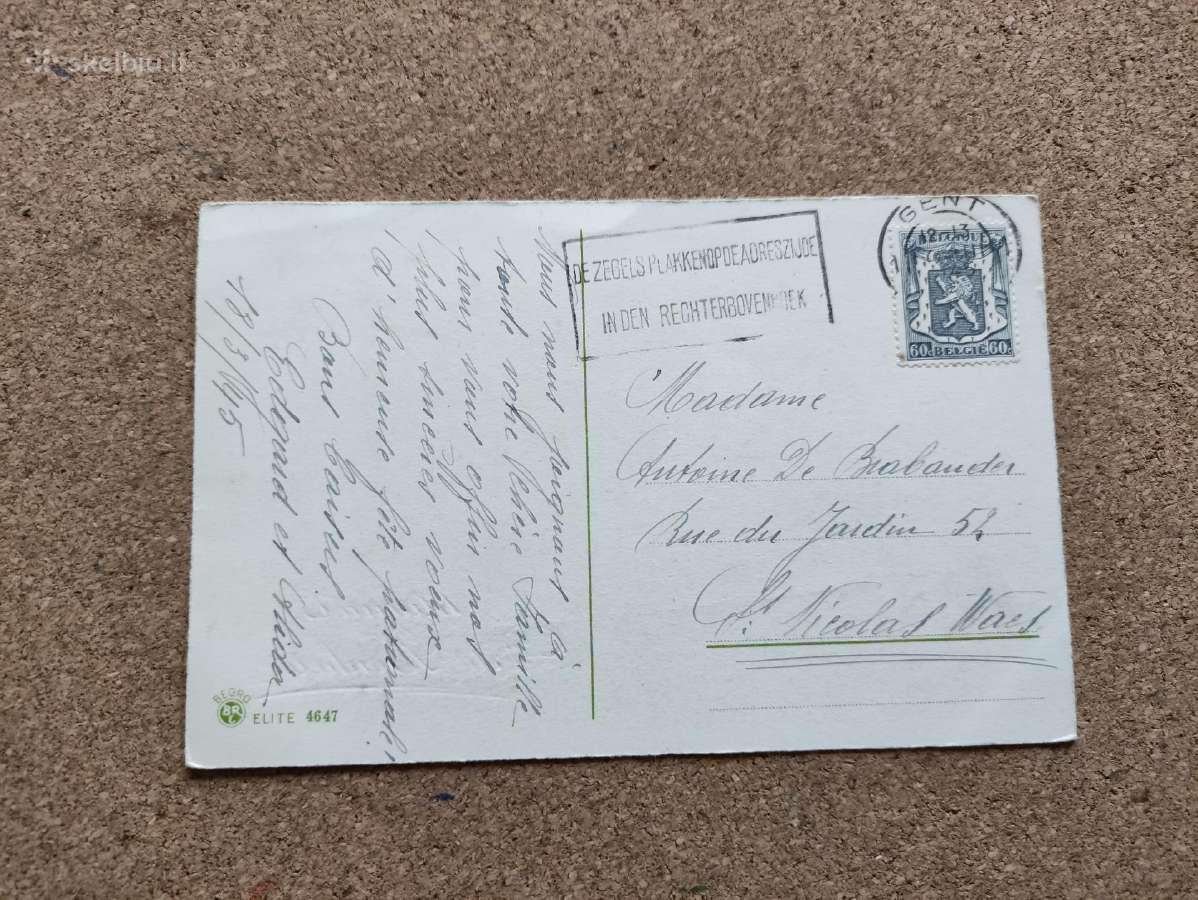 skelbiu.lt
Nous nous joignons à
toute votre chère famille
pour vous offrir nos
plus sincères voeux
d'heureuse fête patronale!
Bons Baisers
Edouard et Alida
18/3/45
DE ZEGELS PLAKKEN OP DE ADRESZIJDE
IN DEN RECHTERBOVENHOEK
GENT
12-13
60c BELGIE 60c
Madame
Antoine De Brabander
Rue du Jardin 52
St. Nicolas Waes
BEGRO
ELITE 4647